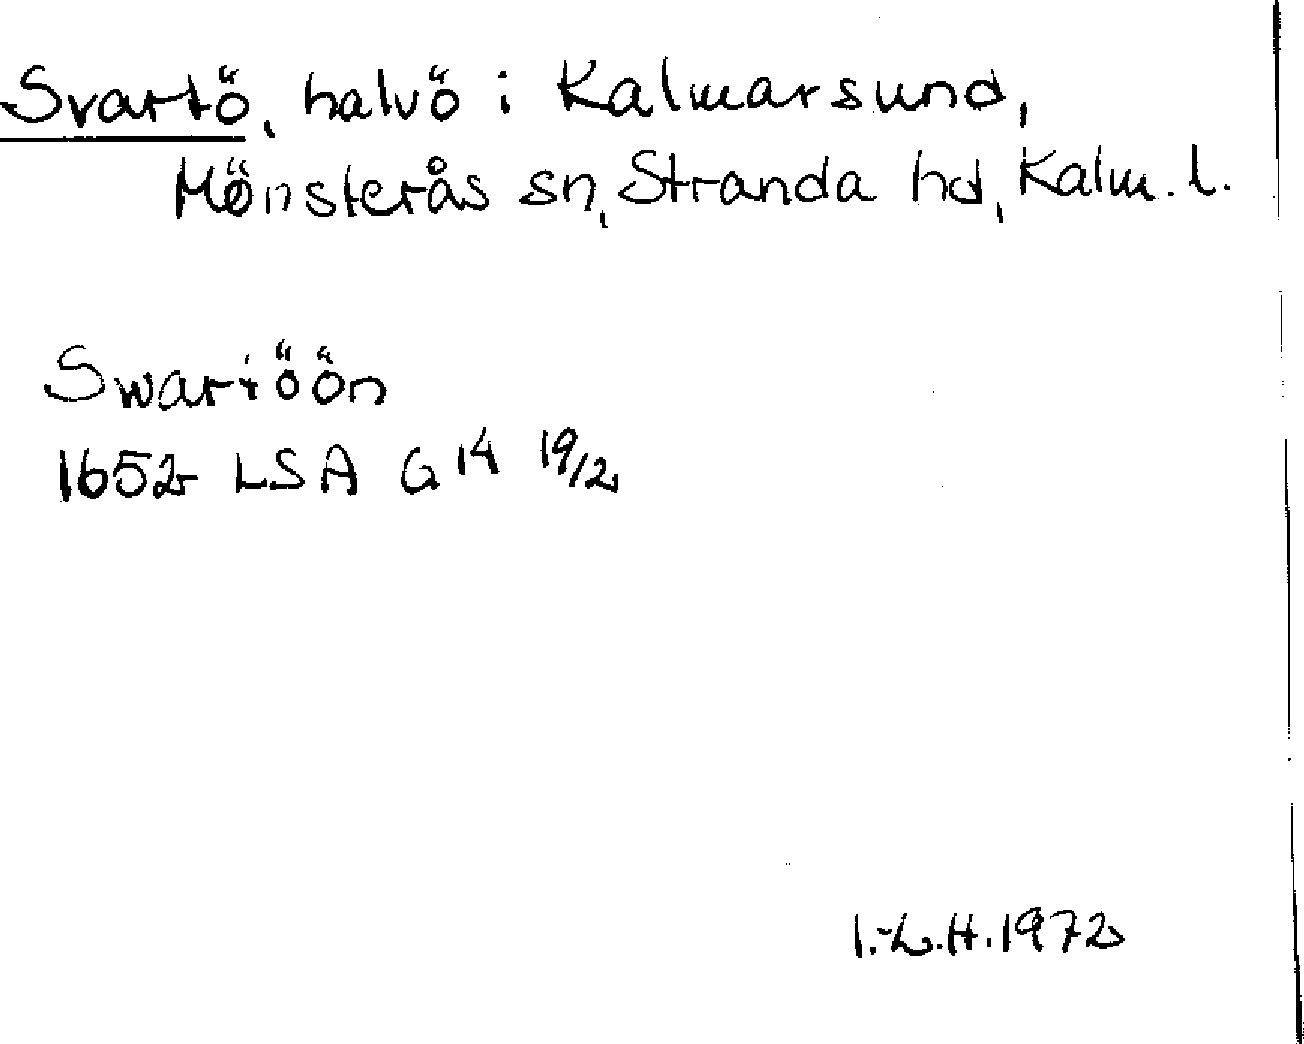 Svartö, halvö i Kalmarsund,
Mönsterås sn, Stranda hd, Kalm. l.
Swartöön
1652 LSA G 14 19/2
I.-L.H. 1972